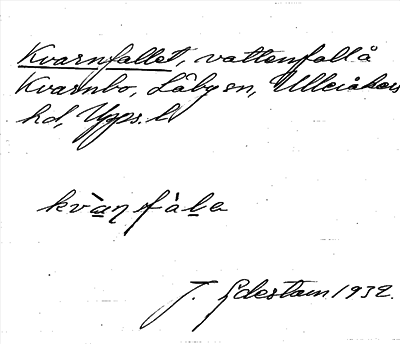 Kvarnfallet, vattenfall å
Kvarnbo, Läby sn, Ulleråkers
hd, Upps. l.
kvàn fàle
J. Edestam 1932.